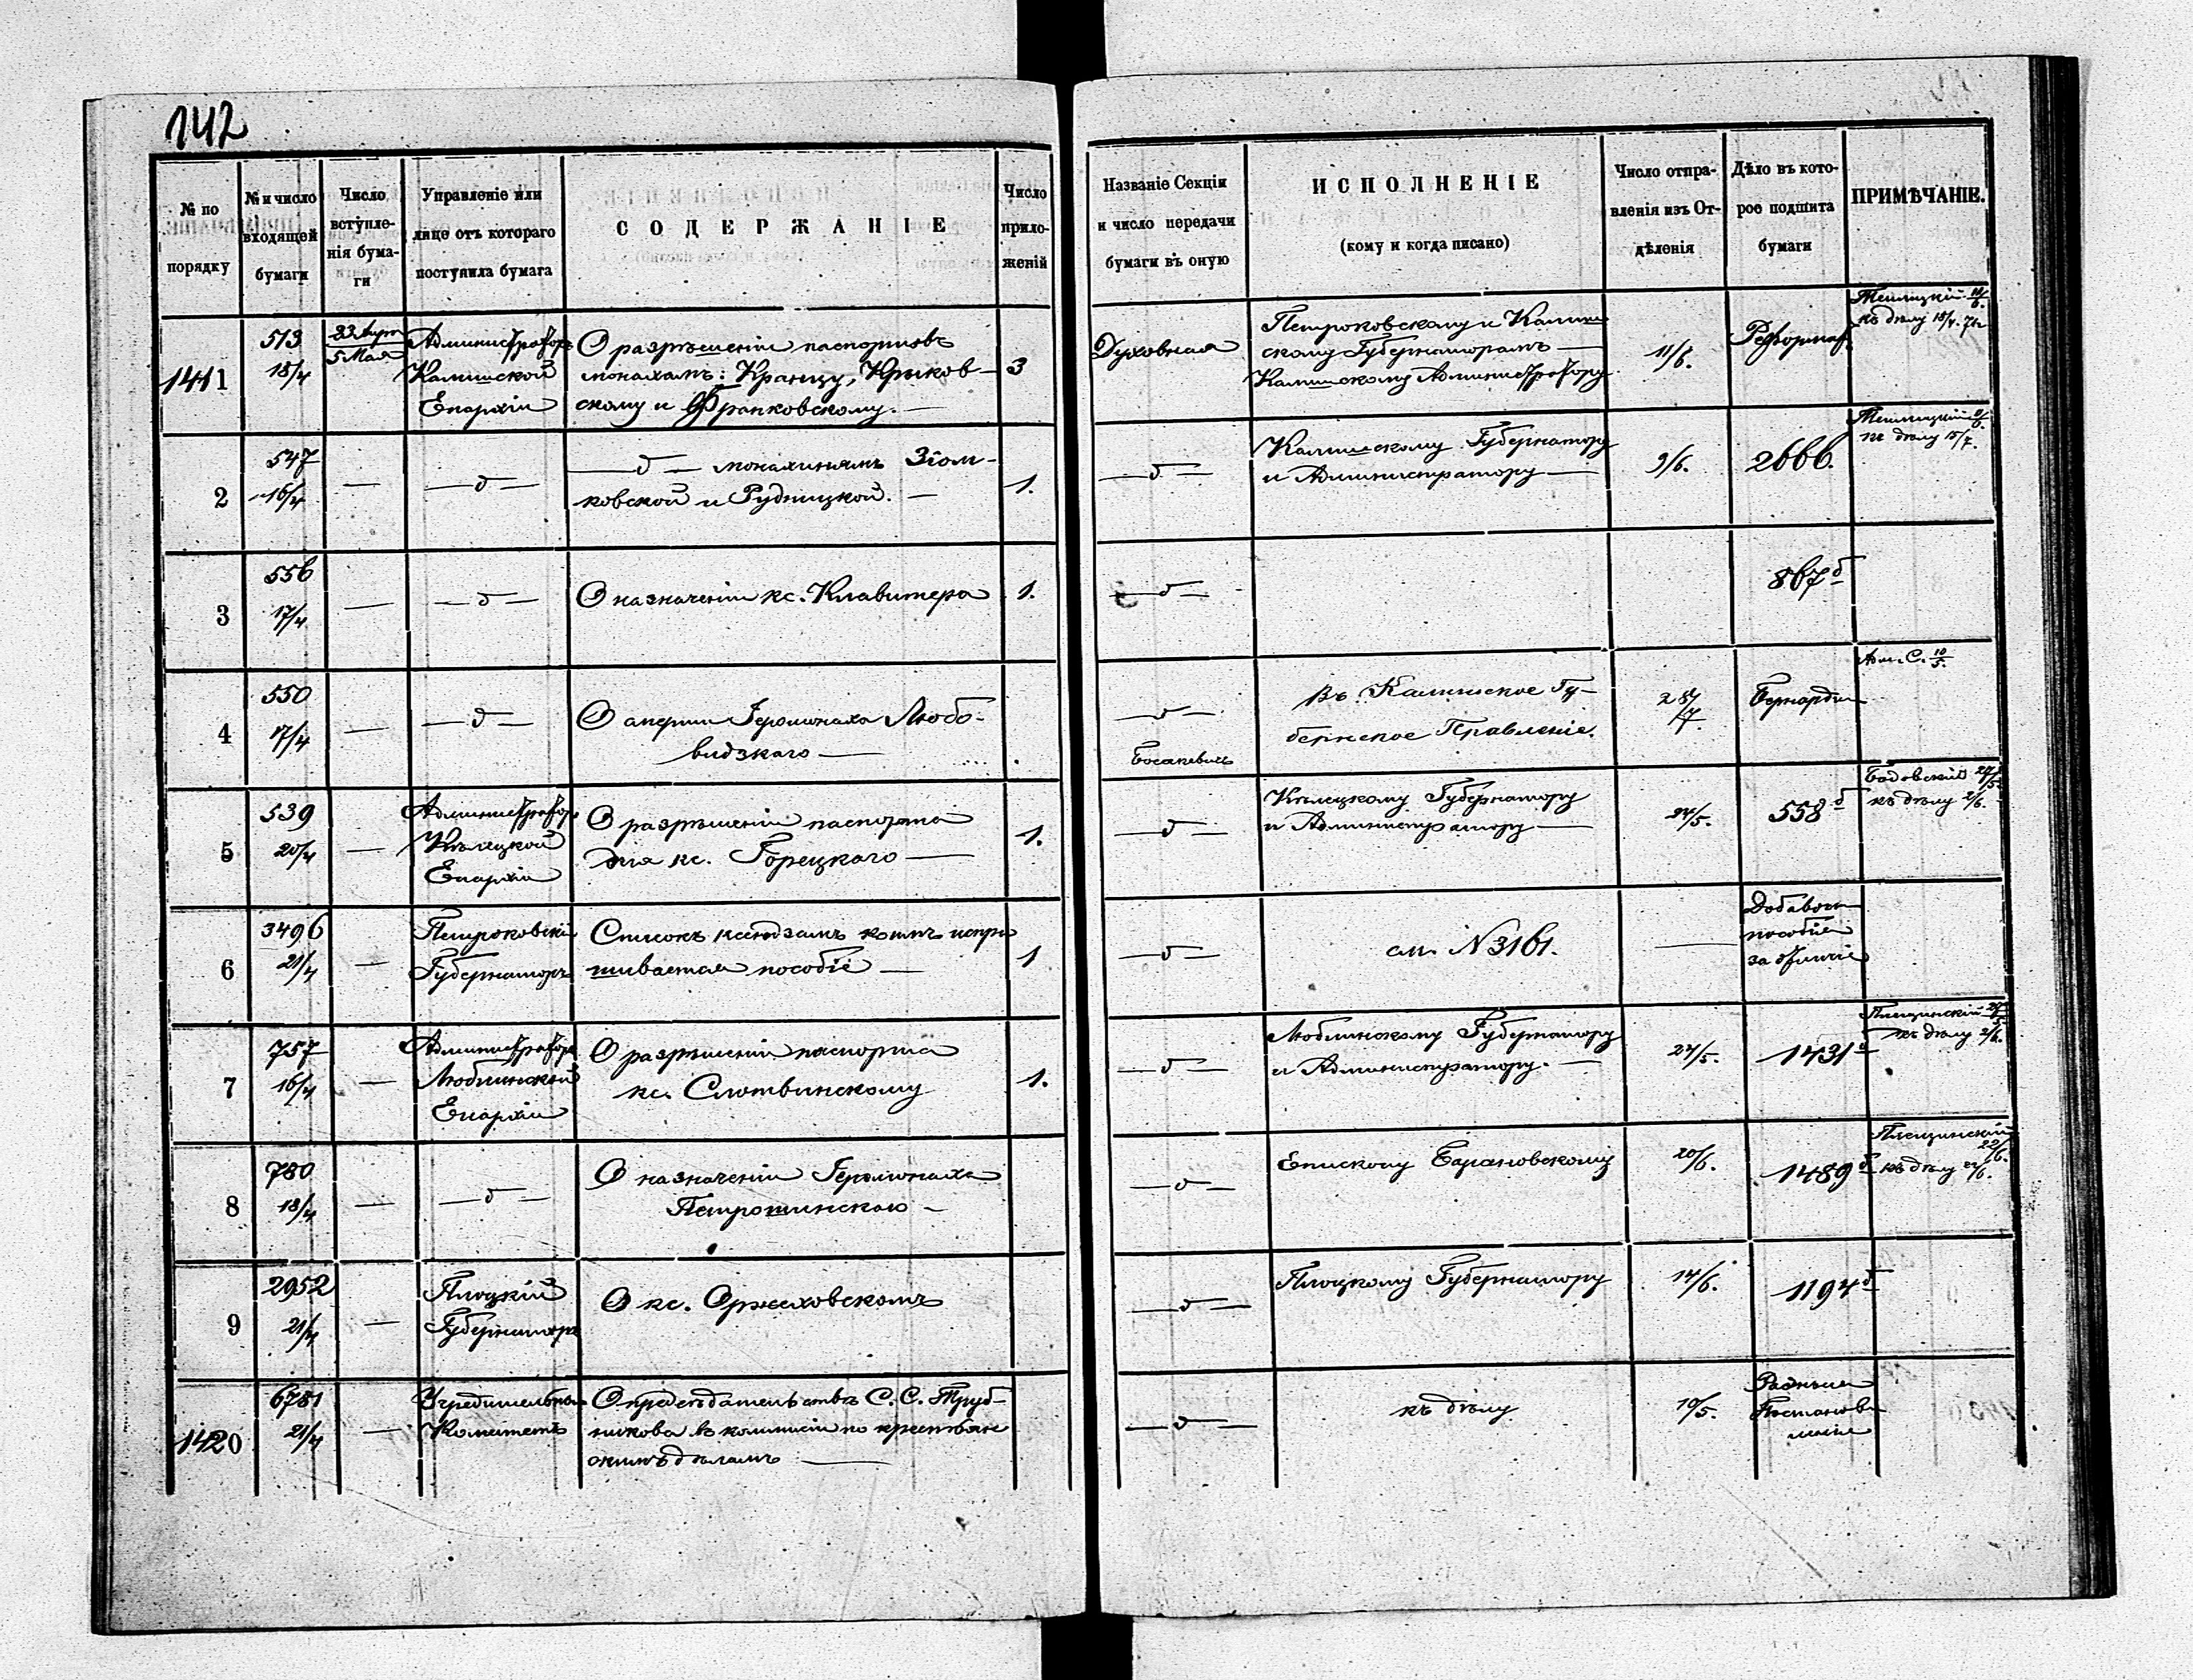 142
№ по порядку
№ и число входящей бумаги
Число вступленія бумаги
Управленіе или лице отъ котораго поступила бумага
СОДЕРЖАНІЕ
Число приложеній
Названіе Секціи и число передачи бумаги въ оную
ИСПОЛНЕНІЕ
(кому и когда писано)
Число отправленія изъ Отдѣленія
Дѣло въ которое подшита бумаги
ПРИМѢЧАНІЕ.
1411
513
18/4
23 Апр.
5 Мая
Администраторъ
Калишской
Епархіи
О разрѣшеніи паспортовъ
монахамъ: Кранцу, Крыков-
скому и Франковскому. —
3
Духовная
Петроковскому и Калиш
скому Губернаторамъ —
Калишскому Администратору
11/6.
Реформат
къ дѣлу 15/7.
2
547
16/4
—
— д —
— д — монахинямъ Зіом-
ковской и Рудницкой. —
1.
— д —
Калишскому Губернатору
и Администратору —
9/6.
2666.
къ дѣлу 15/7.
3
556
17/4
—
— д —
О назначеніи кс. Клавитера
1.
— д —
867 б
4
550
17/4
—
— д —
О смерти Іеромонаха Любо-
видзкаго —
— д —
Босакевичъ
Въ Калишское Гу-
бернское Правленіе.
28/7.
Бернардин
С. 10/5.
5
539
20/4
—
Администраторъ
Кѣлецкой
Епархіи
О разрѣшеніи паспорта
для кс. Горецкаго —
1.
— д —
Кѣлецкому Губернатору
и Администратору —
24/5.
558 б
къ дѣлу 2/6.
6
3496
21/4
—
Петроковскій
Губернаторъ
Списокъ ксендзамъ коимъ испра
шивается пособіе —
1
— д —
см. N 3161.
—
Добавочн
пособіе
за отличіе
7
757
16/4
—
Администраторъ
Люблинской
Епархіи
О разрѣшеніи паспорта
кс. Слотвинскому
1.
— д —
Люблинскому Губернатору
и Администратору. —
24/5.
1431 б
къ дѣлу 2/6.
8
780
18/4
—
— д —
О назначеніи Іеромонаха
Петрошинскаго —
— д —
Епископу Барановскому
20/6.
1489 б
22/6.
къ дѣлу
9
2952
21/4
—
Плоцкій
Губернаторъ
О кс. Оржеховскомъ
— д —
Плоцкому Губернатору
14/6.
1194 б
1420
6781
21/4
—
Учредительный
Комитетъ
О предсѣдательствѣ С. С. Труб-
никова въ коммисіи по крестьян
скимъ дѣламъ —
— д —
къ дѣлу
10/5.
Разныя
Постановле